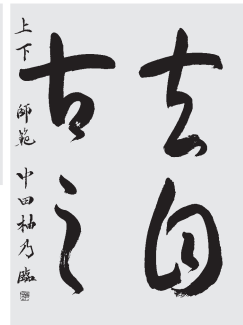 夫自
古之
上下 師範 中田柚乃臨